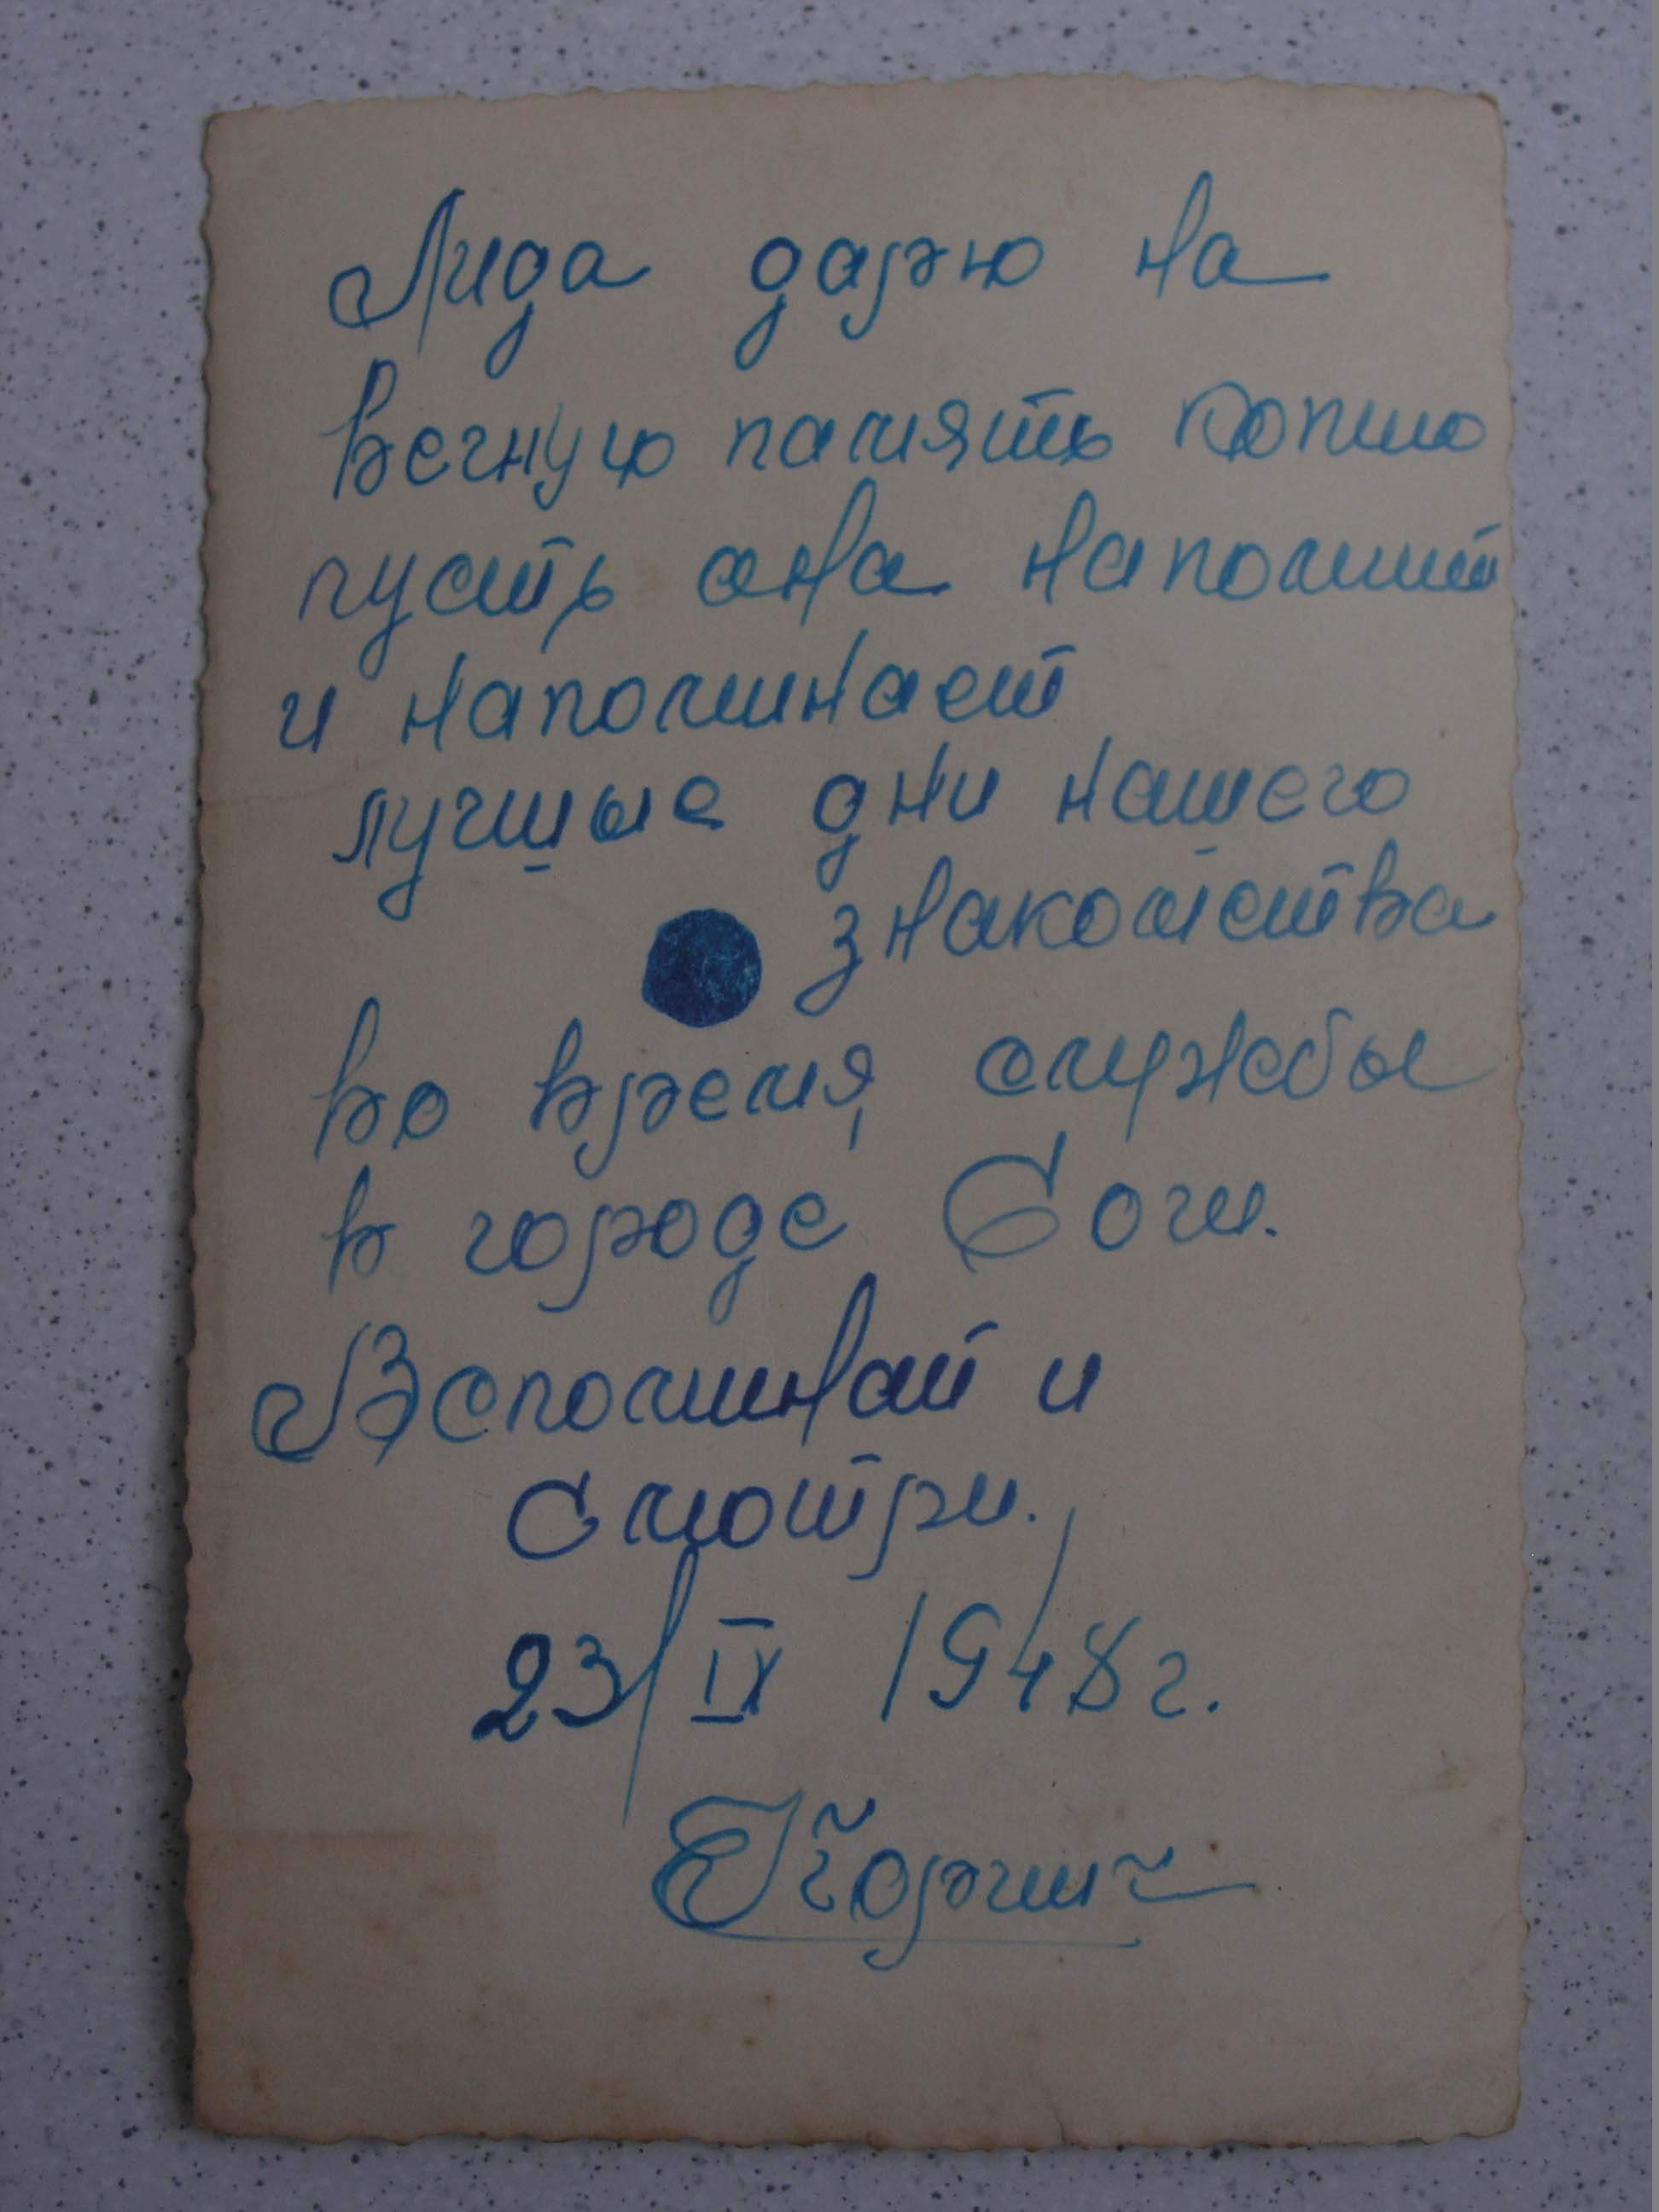 Лида дарю на
вечную память копию
пусть она напомнит
и напоминает
лучшые дни нашего
знакомства
во время службы
в городе Сочи.
Вспоминай и
Смотри.
23/IX 1948 г.